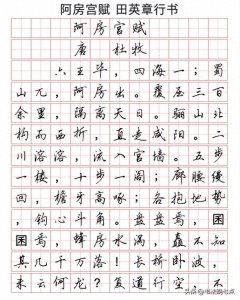 阿房宫赋 田英章行书
阿房宫赋
唐 杜牧
六王毕，四海一；蜀
山兀，阿房出。覆压三百
余里，隔离天日。骊山北
构而西折，直走咸阳。二
川溶溶，流入宫墙。五步
一楼，十步一阁；廊腰缦
回，檐牙高啄；各抱地势
，钩心斗角。盘盘焉，囷
囷焉，蜂房水涡，矗不知
其几千万落！长桥卧波，
未云何龙？复道行空，不